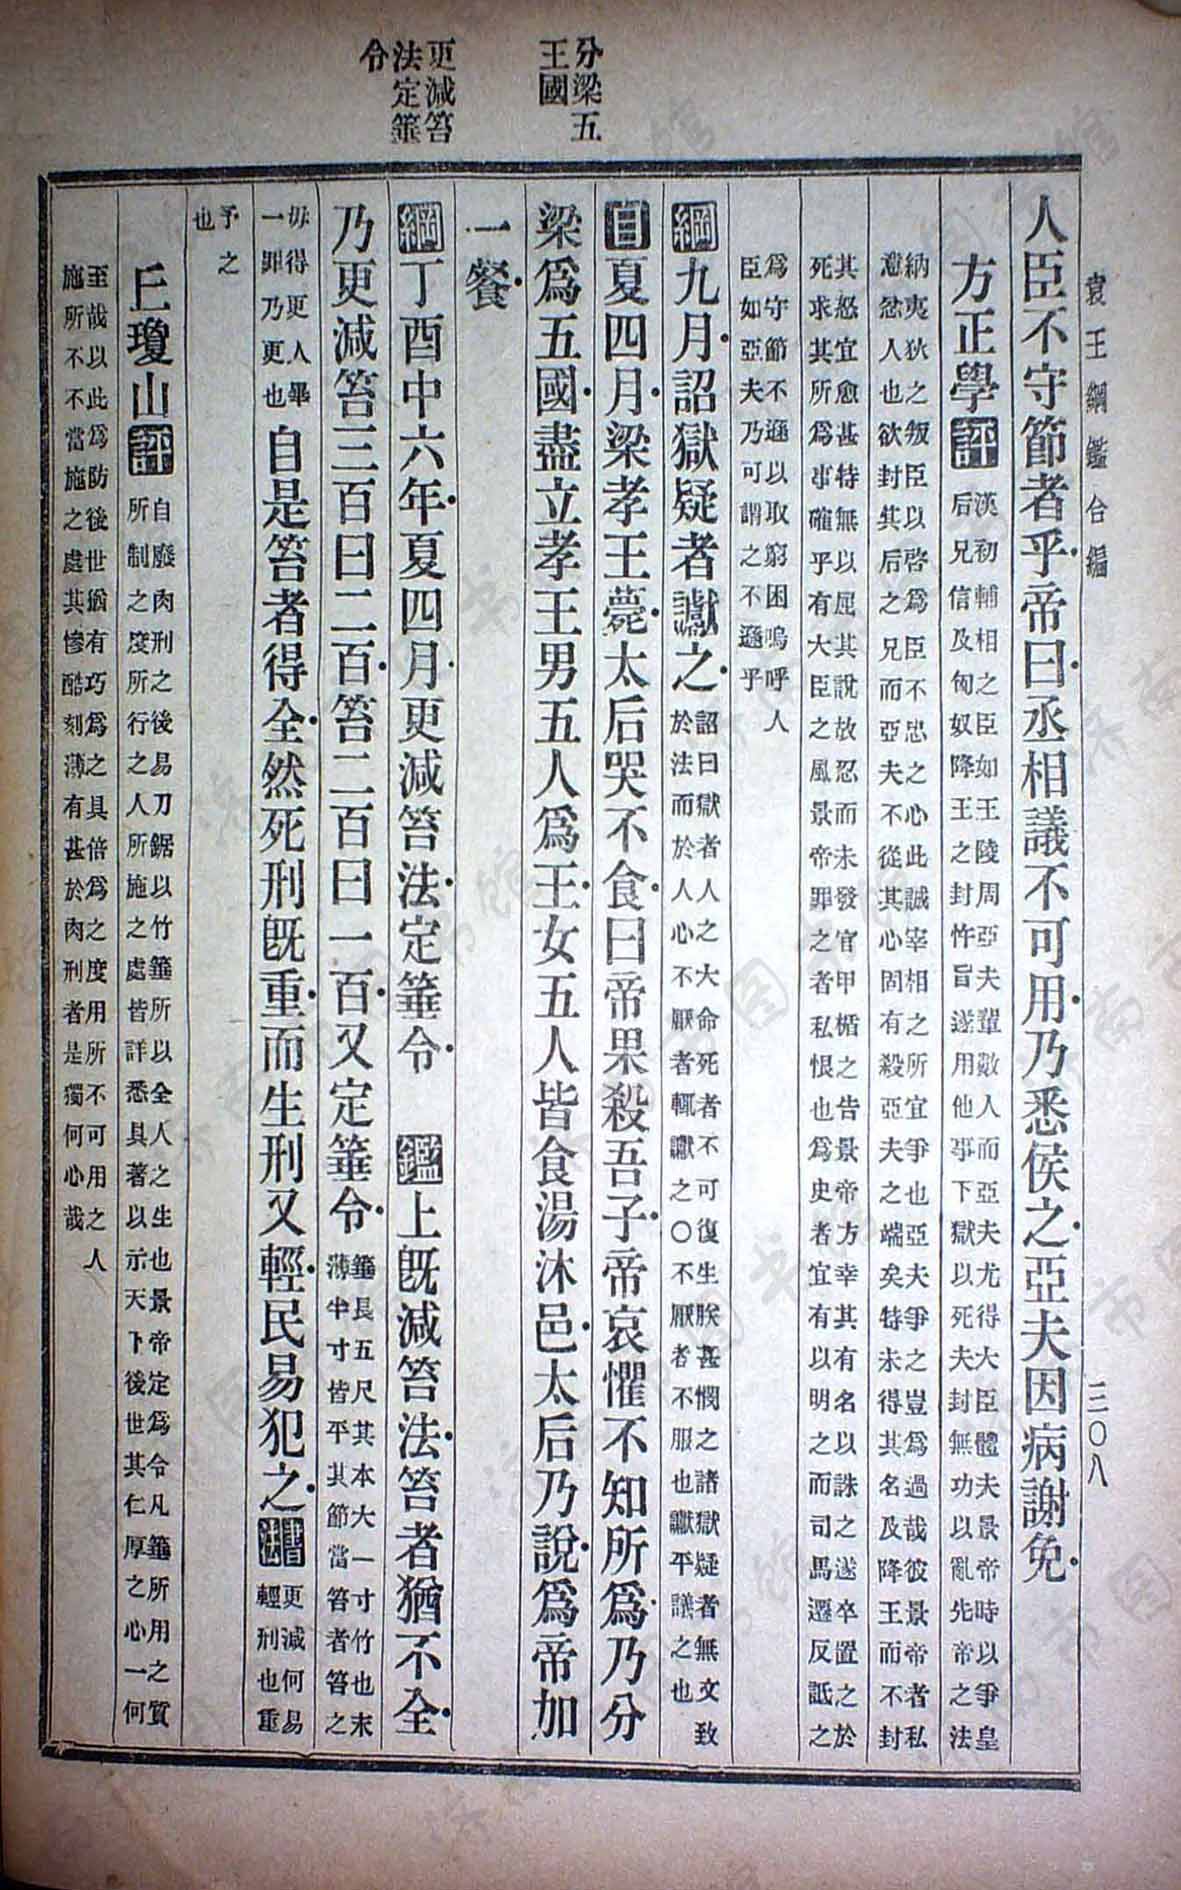 袁王綱鑑合編
三〇八
分梁五
王國
更減笞
法定箠
令
人臣不守節者乎帝曰丞相議不可用乃悉侯之亞夫因病謝免
方正學評漢初輔相之臣如王陵周亞夫輩數人而亞夫尤得大臣體夫景帝時以爭皇
后兄信及匈奴降王之封忤旨遂用他事下獄以死夫封無功以亂先帝之法
納夷狄之叛臣以啓爲臣不忠之心此誠宰相之所宜爭也亞夫爭之豈爲過哉彼景帝者私
忿人也欲封其后之兄而亞夫不從其心固有殺亞夫之端矣特未得其名及降王而不封
其怒宜愈甚特無以屈其說故忍而未發官甲楯之告景帝方幸其有名以誅之遂卒置之於
死求其所爲事確乎有大臣之風景帝罪之者私恨也爲史者宜有以明之而司馬遷反詆之
爲守節不遜以取窮困嗚呼人
臣如亞夫乃可謂之不遜乎
綱九月詔獄疑者讞之詔曰獄者人之大命死者不可復生朕甚憫之諸獄疑者無文致
於法而於人心不厭者輒讞之〇不厭者不服也讞平議之也
目夏四月梁孝王薨太后哭不食曰帝果殺吾子帝哀懼不知所爲乃分
梁爲五國盡立孝王男五人爲王女五人皆食湯沐邑太后乃說爲帝加
一餐
綱丁酉中六年夏四月更減笞法定箠令 鑑上旣減笞法笞者猶不全
乃更減笞三百曰二百笞二百曰一百又定箠令箠長五尺其本大一寸竹也末
薄半寸皆平其節當笞者笞之
毋得更人畢
一罪乃更也
自是笞者得全然死刑旣重而生刑又輕民易犯之書法更減何易
輕刑也重
予之
也
丘瓊山評自廢肉刑之後易刀鋸以竹箠所以全人之生也景帝定爲令凡箠所用之質
所制之度所行之人所施之處皆詳悉具著以示天下後世其仁厚之心一何
至哉以此爲防後世猶有巧爲之具倍爲之度用所不可用之人
施所不當施之處其慘酷刻薄有甚於肉刑者是獨何心哉